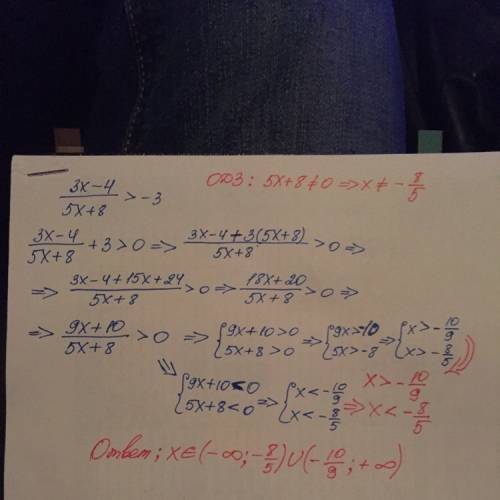 (3x-4)/(5x+8) > -3 ОДЗ: 5x+8≠0 ⇒ x≠ -8/5
(3x-4)/(5x+8) + 3 > 0 ⇒ (3x-4+3(5x+8))/(5x+8) > 0 ⇒
⇒ (3x-4+15x+24)/(5x+8) > 0 ⇒ (18x+20)/(5x+8) > 0 ⇒
⇒ (9x+10)/(5x+8) > 0 ⇒ { 9x+10>0 ; 5x+8>0 ⇒ { 9x>-10 ; 5x>-8 ⇒ { x>-10/9 ; x>-8/5
⇓ { 9x+10<0 ; 5x+8<0 ⇒ { x<-10/9 ; x<-8/5 ⇒ x>-10/9 ; x<-8/5
Ответ; x∈(-∞;-8/5)∪(-10/9;+∞)